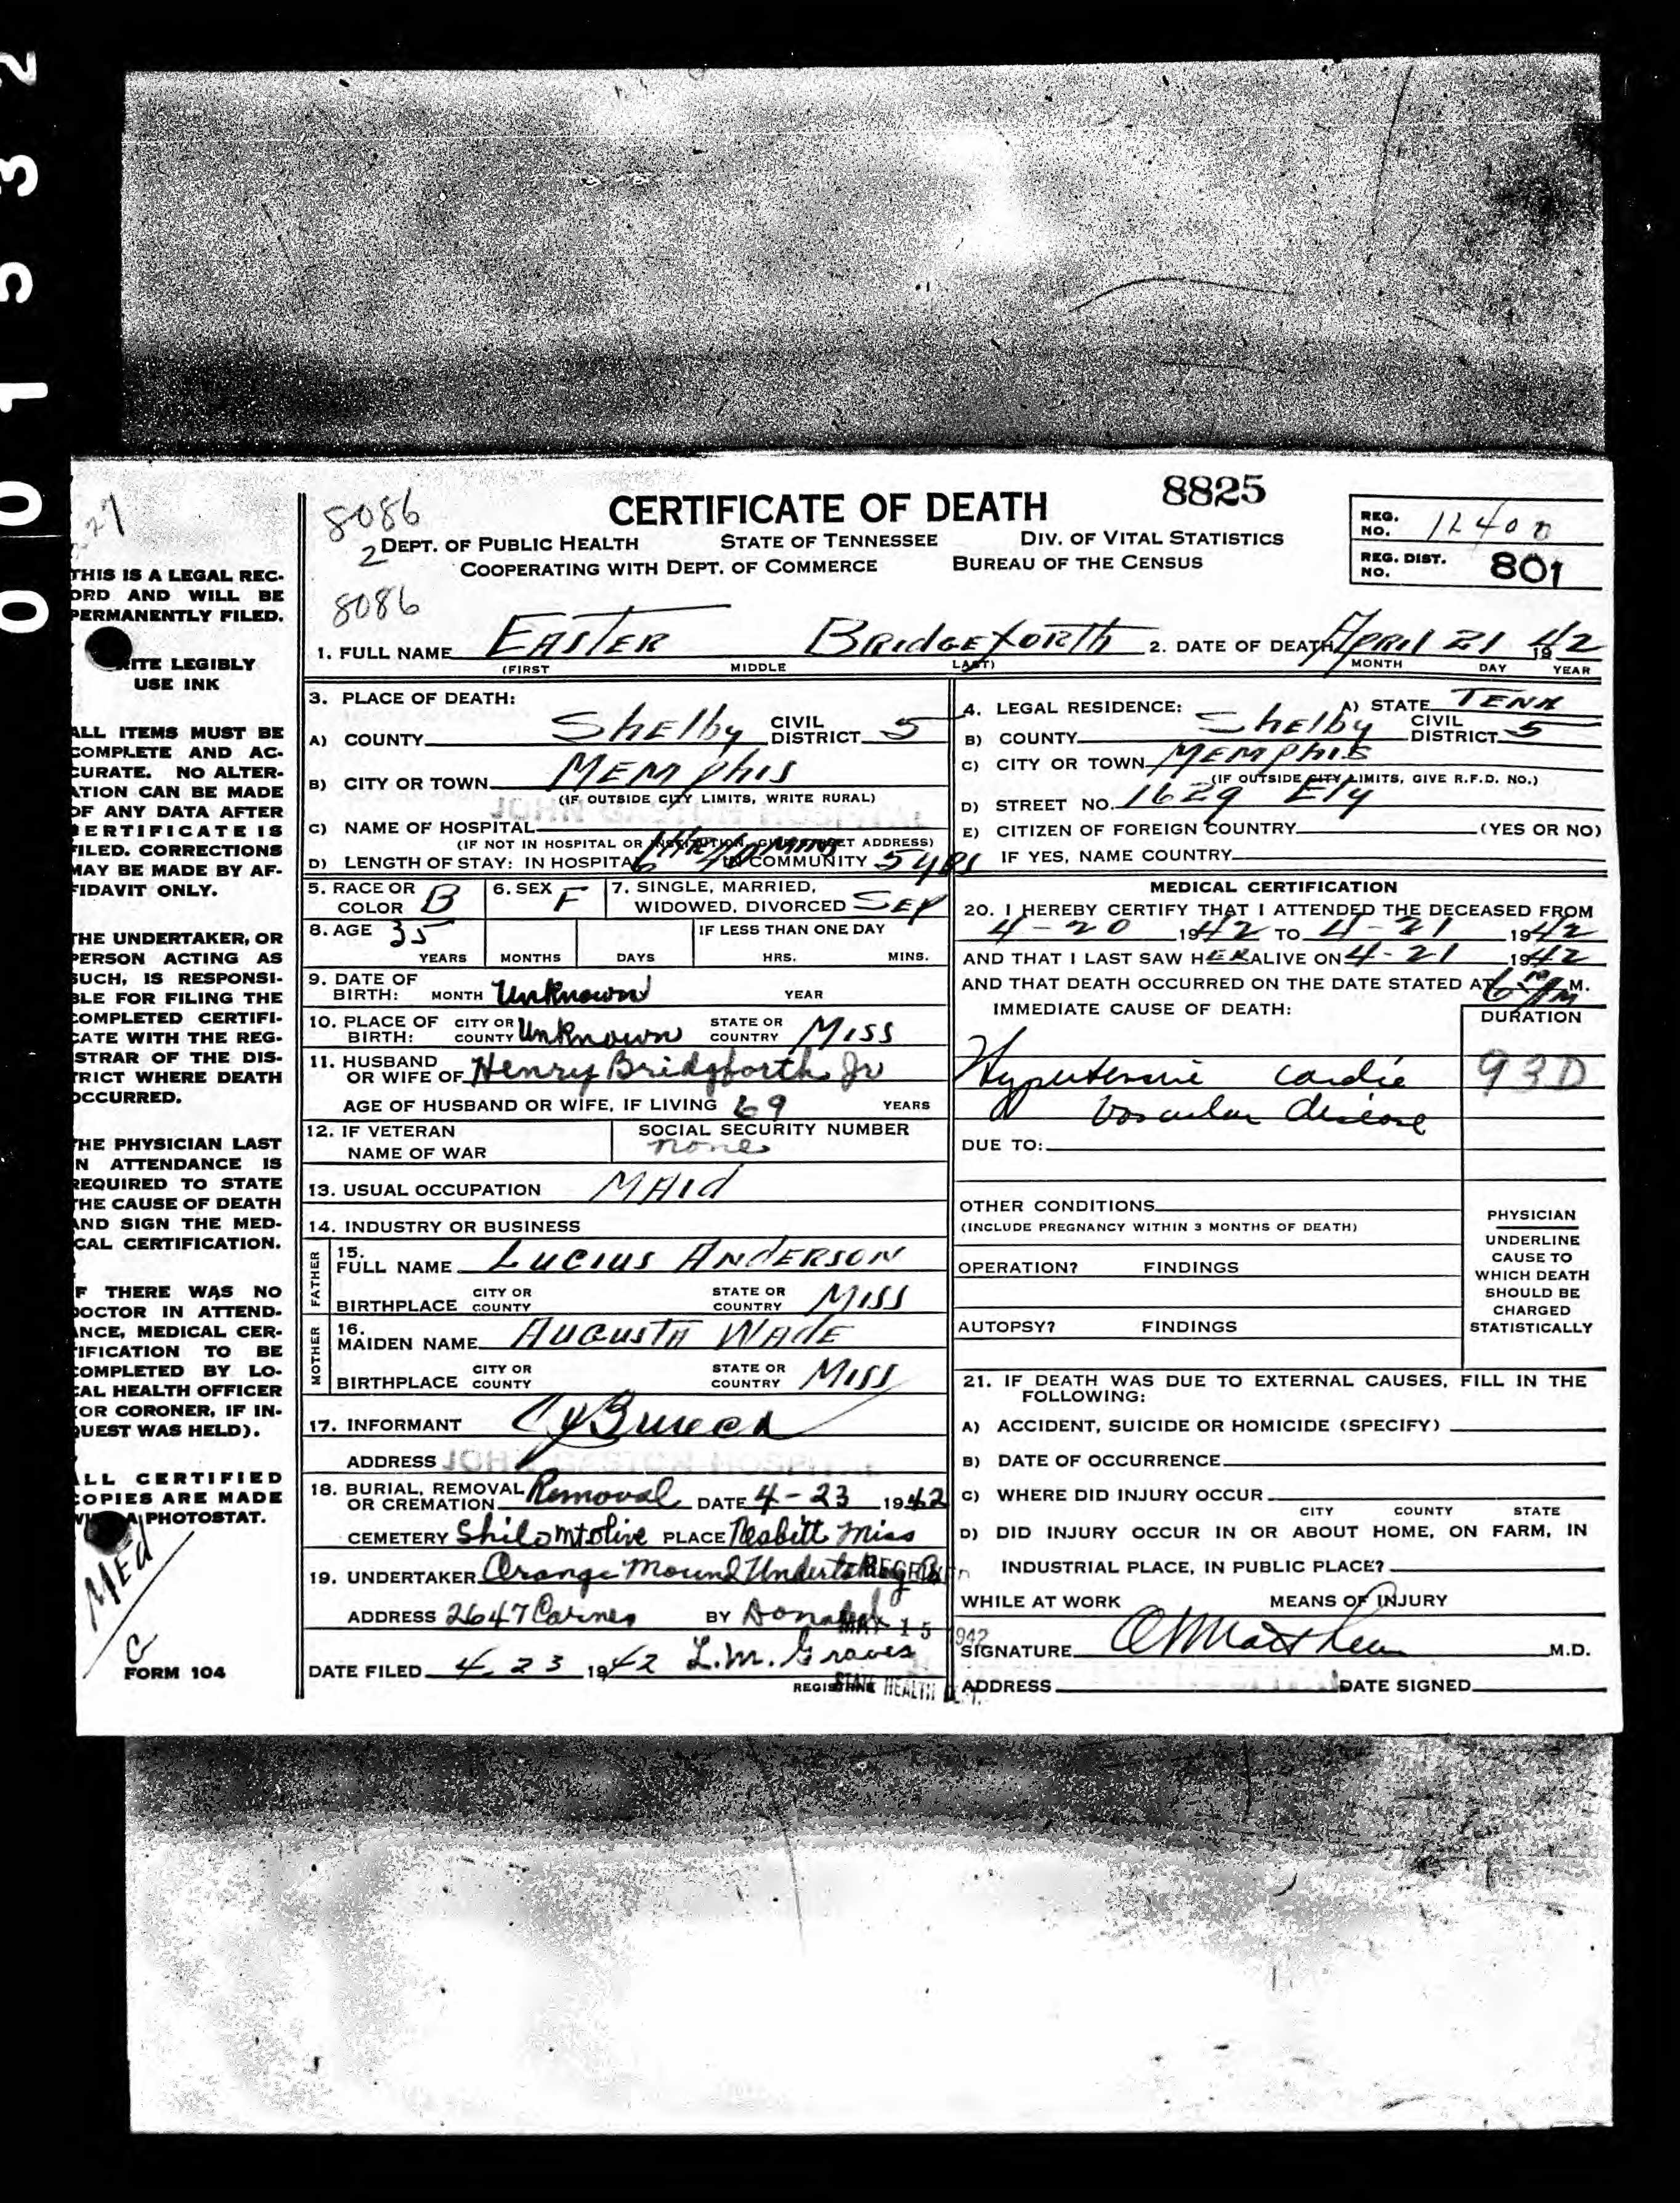 0 0 1 5 3 2
27
THIS IS A LEGAL REC-
ORD AND WILL BE
PERMANENTLY FILED.
WRITE LEGIBLY
USE INK
ALL ITEMS MUST BE
COMPLETE AND AC-
CURATE. NO ALTER-
ATION CAN BE MADE
OF ANY DATA AFTER
CERTIFICATE IS
FILED. CORRECTIONS
MAY BE MADE BY AF-
FIDAVIT ONLY.
THE UNDERTAKER, OR
PERSON ACTING AS
SUCH, IS RESPONSI-
BLE FOR FILING THE
COMPLETED CERTIFI-
CATE WITH THE REG-
STRAR OF THE DIS-
TRICT WHERE DEATH
OCCURRED.
THE PHYSICIAN LAST
N ATTENDANCE IS
REQUIRED TO STATE
THE CAUSE OF DEATH
AND SIGN THE MED-
CAL CERTIFICATION.
F THERE WAS NO
DOCTOR IN ATTEND-
ANCE, MEDICAL CER-
TIFICATION TO BE
COMPLETED BY LO-
CAL HEALTH OFFICER
(OR CORONER, IF IN-
QUEST WAS HELD).
ALL CERTIFIED
COPIES ARE MADE
A PHOTOSTAT.
MEd
G
FORM 104
8086
CERTIFICATE OF DEATH
8825
REG. NO. 12400
2 DEPT. OF PUBLIC HEALTH STATE OF TENNESSEE DIV. OF VITAL STATISTICS
COOPERATING WITH DEPT. OF COMMERCE BUREAU OF THE CENSUS
REG. DIST. NO. 801
8086
1. FULL NAME EASTER BRIDGEFORTH 2. DATE OF DEATH APRIL 21 1942
(FIRST MIDDLE LAST) MONTH DAY YEAR
3. PLACE OF DEATH:
A) COUNTY Shelby CIVIL DISTRICT 5
B) CITY OR TOWN MEMPhis
(IF OUTSIDE CITY LIMITS, WRITE RURAL)
JOHN GASTON HOSPITAL
C) NAME OF HOSPITAL
(IF NOT IN HOSPITAL OR INSTITUTION, GIVE STREET ADDRESS)
D) LENGTH OF STAY: IN HOSPITAL IN COMMUNITY 5 yrs
5. RACE OR COLOR B 6. SEX F 7. SINGLE, MARRIED, WIDOWED, DIVORCED SEP
8. AGE 35 IF LESS THAN ONE DAY
YEARS MONTHS DAYS HRS. MINS.
9. DATE OF BIRTH: MONTH Unknown YEAR
10. PLACE OF BIRTH: CITY OR COUNTY Unknown STATE OR COUNTRY MISS
11. HUSBAND OR WIFE OF Henry Bridgforth Jr
AGE OF HUSBAND OR WIFE, IF LIVING 69 YEARS
12. IF VETERAN NAME OF WAR SOCIAL SECURITY NUMBER none
13. USUAL OCCUPATION MAId
14. INDUSTRY OR BUSINESS
FATHER
15. FULL NAME LUCIUS ANDERSON
BIRTHPLACE CITY OR COUNTY STATE OR COUNTRY MISS
MOTHER
16. MAIDEN NAME AUGUSTA WADE
BIRTHPLACE CITY OR COUNTY STATE OR COUNTRY MISS
17. INFORMANT
ADDRESS JOHN GASTON HOSPITAL
18. BURIAL, REMOVAL OR CREMATION Removal DATE 4-23 1942
CEMETERY Shilo mt olive PLACE Nesbitt Miss
19. UNDERTAKER Orange Mound Undertaking Co
ADDRESS 2647 Carnes BY
MAY 15 1942
DATE FILED 4 23 1942 L.M. Graves
REGISTRAR
STATE HEALTH DEPT.
4. LEGAL RESIDENCE: A) STATE TENN
B) COUNTY Shelby CIVIL DISTRICT 5
C) CITY OR TOWN MEMPhis
(IF OUTSIDE CITY LIMITS, GIVE R.F.D. NO.)
D) STREET NO. 1629 Ely
E) CITIZEN OF FOREIGN COUNTRY (YES OR NO)
IF YES, NAME COUNTRY
MEDICAL CERTIFICATION
20. I HEREBY CERTIFY THAT I ATTENDED THE DECEASED FROM
4-20 1942 TO 4-21 1942
AND THAT I LAST SAW HER ALIVE ON 4-21 1942
AND THAT DEATH OCCURRED ON THE DATE STATED AT M.
IMMEDIATE CAUSE OF DEATH: DURATION
Hypertensive cardio 93D
vascular disease
DUE TO:
OTHER CONDITIONS
(INCLUDE PREGNANCY WITHIN 3 MONTHS OF DEATH)
OPERATION? FINDINGS
AUTOPSY? FINDINGS
PHYSICIAN
UNDERLINE
CAUSE TO
WHICH DEATH
SHOULD BE
CHARGED
STATISTICALLY
21. IF DEATH WAS DUE TO EXTERNAL CAUSES, FILL IN THE
FOLLOWING:
A) ACCIDENT, SUICIDE OR HOMICIDE (SPECIFY)
B) DATE OF OCCURRENCE
C) WHERE DID INJURY OCCUR
CITY COUNTY STATE
D) DID INJURY OCCUR IN OR ABOUT HOME, ON FARM, IN
INDUSTRIAL PLACE, IN PUBLIC PLACE?
WHILE AT WORK MEANS OF INJURY
SIGNATURE M.D.
ADDRESS DATE SIGNED